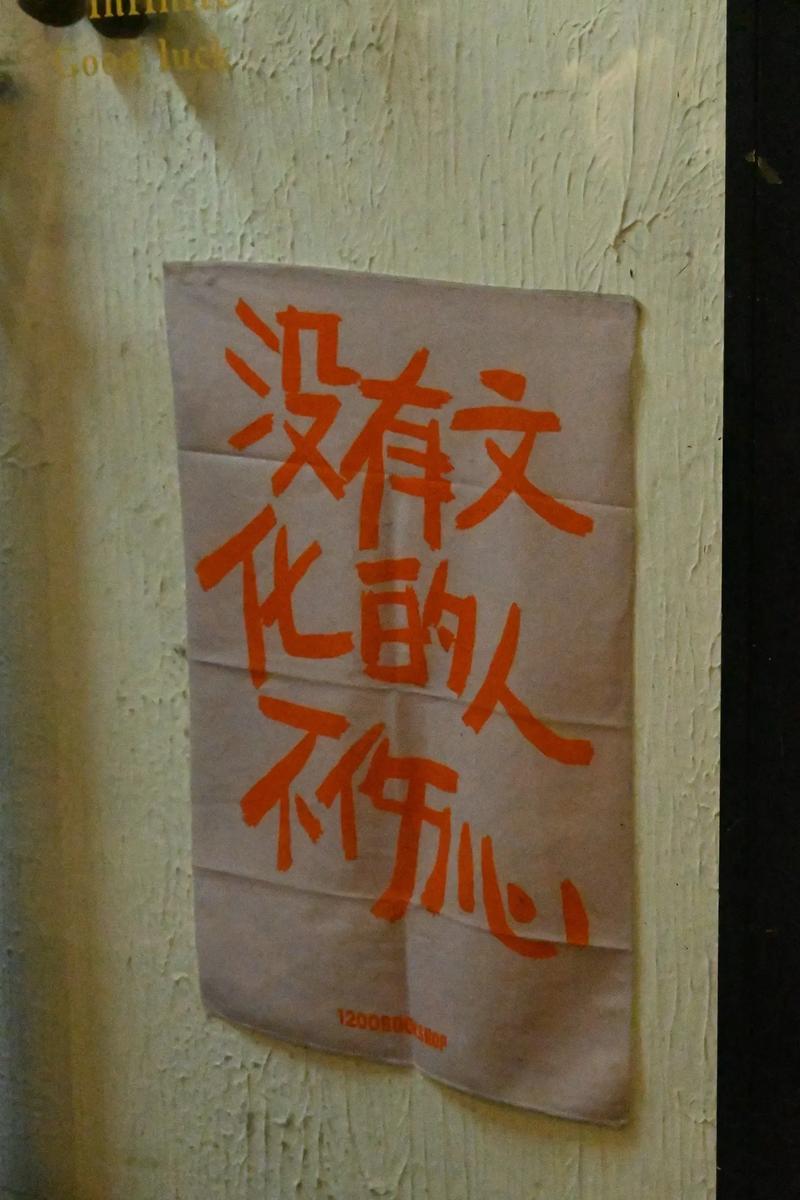 Infinite
Good luck
没有文
化的人
不伤心
1200BOOKSHOP